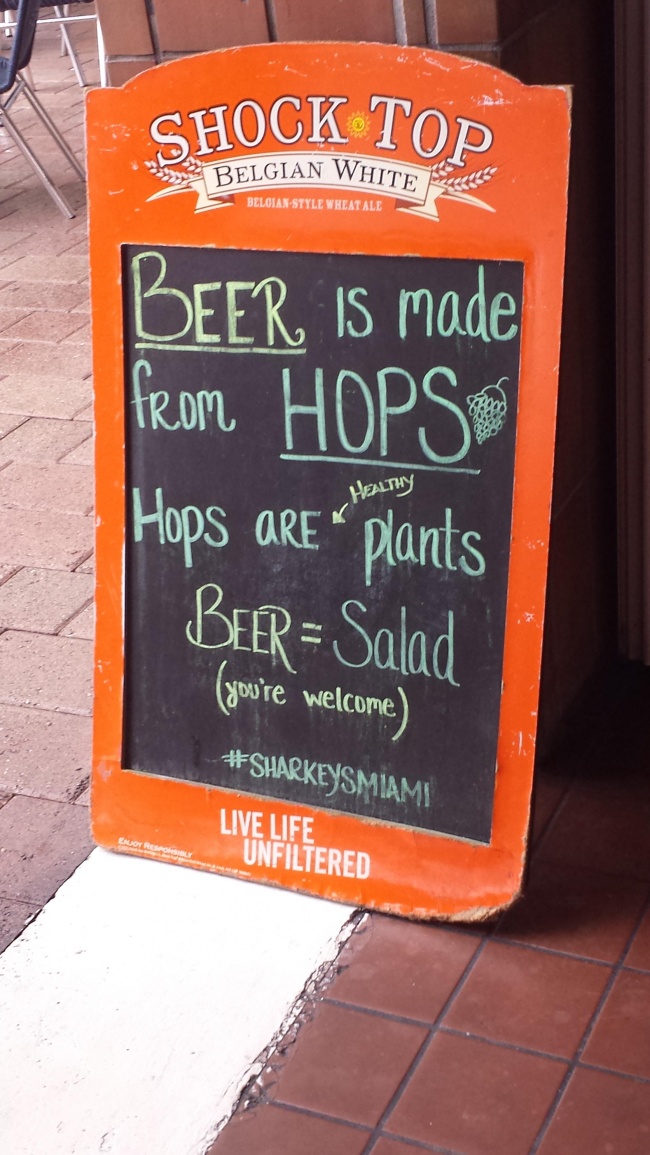 SHOCK TOP
BELGIAN WHITE
BELGIAN-STYLE WHEAT ALE
BEER IS made
from HOPS
HEALTHY
Hops ARE plants
BEER = Salad
(you're welcome)
#SHARKEYSMIAMI
LIVE LIFE
UNFILTERED
ENJOY RESPONSIBLY